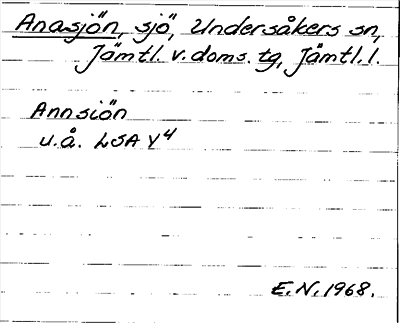 Anasjön, sjö, Undersåkers sn,
Jämtl. v. doms. tg, Jämtl. l.
Annsiön
u.å. LSA Y4
E.N. 1968.